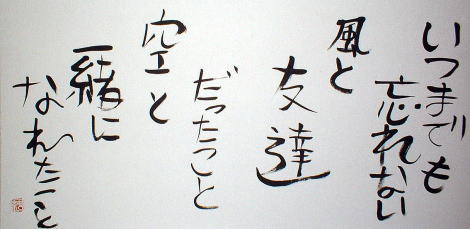 いつまでも
忘れない
風と
友達
だったこと
空と
一緒に
なれたこと